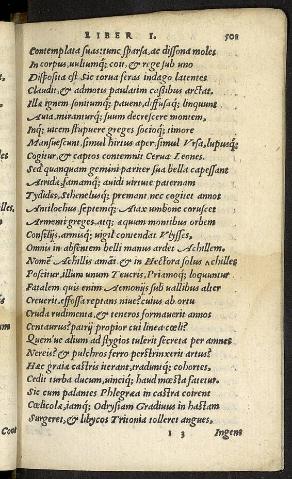 LIBER I. 508
Contemplata suas: tunc sparsa, ac dissona moles
In corpus, uultumq; coit, & rege sub uno
Disposita est. Sic torua feras indago latentes
Claudit, & admotis paulatim cassibus arctat.
Illæ ignem sonitumq; pauent, diffusaq; linquunt
Auia, miranturq; suum decrescere montem,
Inq; uicem stupuere greges socijq; timore
Mansuescunt. simul hirtus aper: simul Vrsa, lupusq;
Cogitur, & captos contemnit Cerua Leones.
Sed quanquam gemini pariter sua bella capessant
Atridæ, famamq; auidi uirtute paternam
Tydides, Sthenelusq; premant nec cogitet annos
Antilochus, septemq; Aiax umbone coruscet
Armenti greges, atq; æquum montibus orbem
Consilijs, armisq; uigil contendat Vlysses,
Omnis in absentem belli manus ardet Achillem.
Nomē Achillis amāt, & in Hectora solus Achilles
Poscitur, illum unum Teucris, Priamoq; loquuntur
Fatalem. quis enim Aemonijs sub uallibus alter
Creuerit, effossa reptans niue? cuius ab ortu
Cruda rudimenta, & teneros formauerit annos
Centaurus? patrij propior cui linea cœli?
Quem'ue alium ad stygios tulerit secreta per amnes
Nereis? & pulchros ferro perstrinxerit artus?
Hæc graia castris iterant, traduntq; cohortes,
Cedit turba ducum, uinciq; haud mœsta fatetur.
Sic cum palantes Phlegræa in castra coirent
Cœlicolæ, iamq; Odrysiam Gradiuus in hastam
Surgeret, & libycos Tritonia tolleret angues,
l 3 Ingens